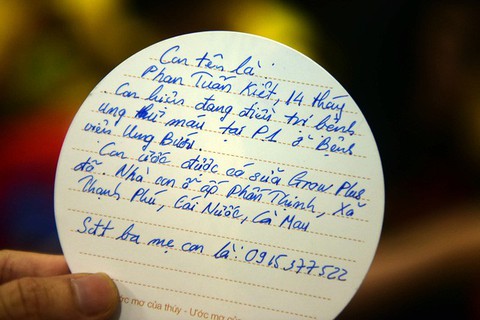 Con tên là:
Phan Tuấn Kiệt, 14 tháy
Con hiện đang điều trị bệnh
ung thư máu tại P1 ở Bệnh
viện Ung Bướu.
Con ước được cá sữa Grow Plus
đỏ. Nhà con ở ấp Phấn Thạnh, Xã
Thạnh Phú, Cái Nước, Cà Mau
Sđt ba mẹ con là: 0915377522
ước mơ của thúy - Ước mơ củ